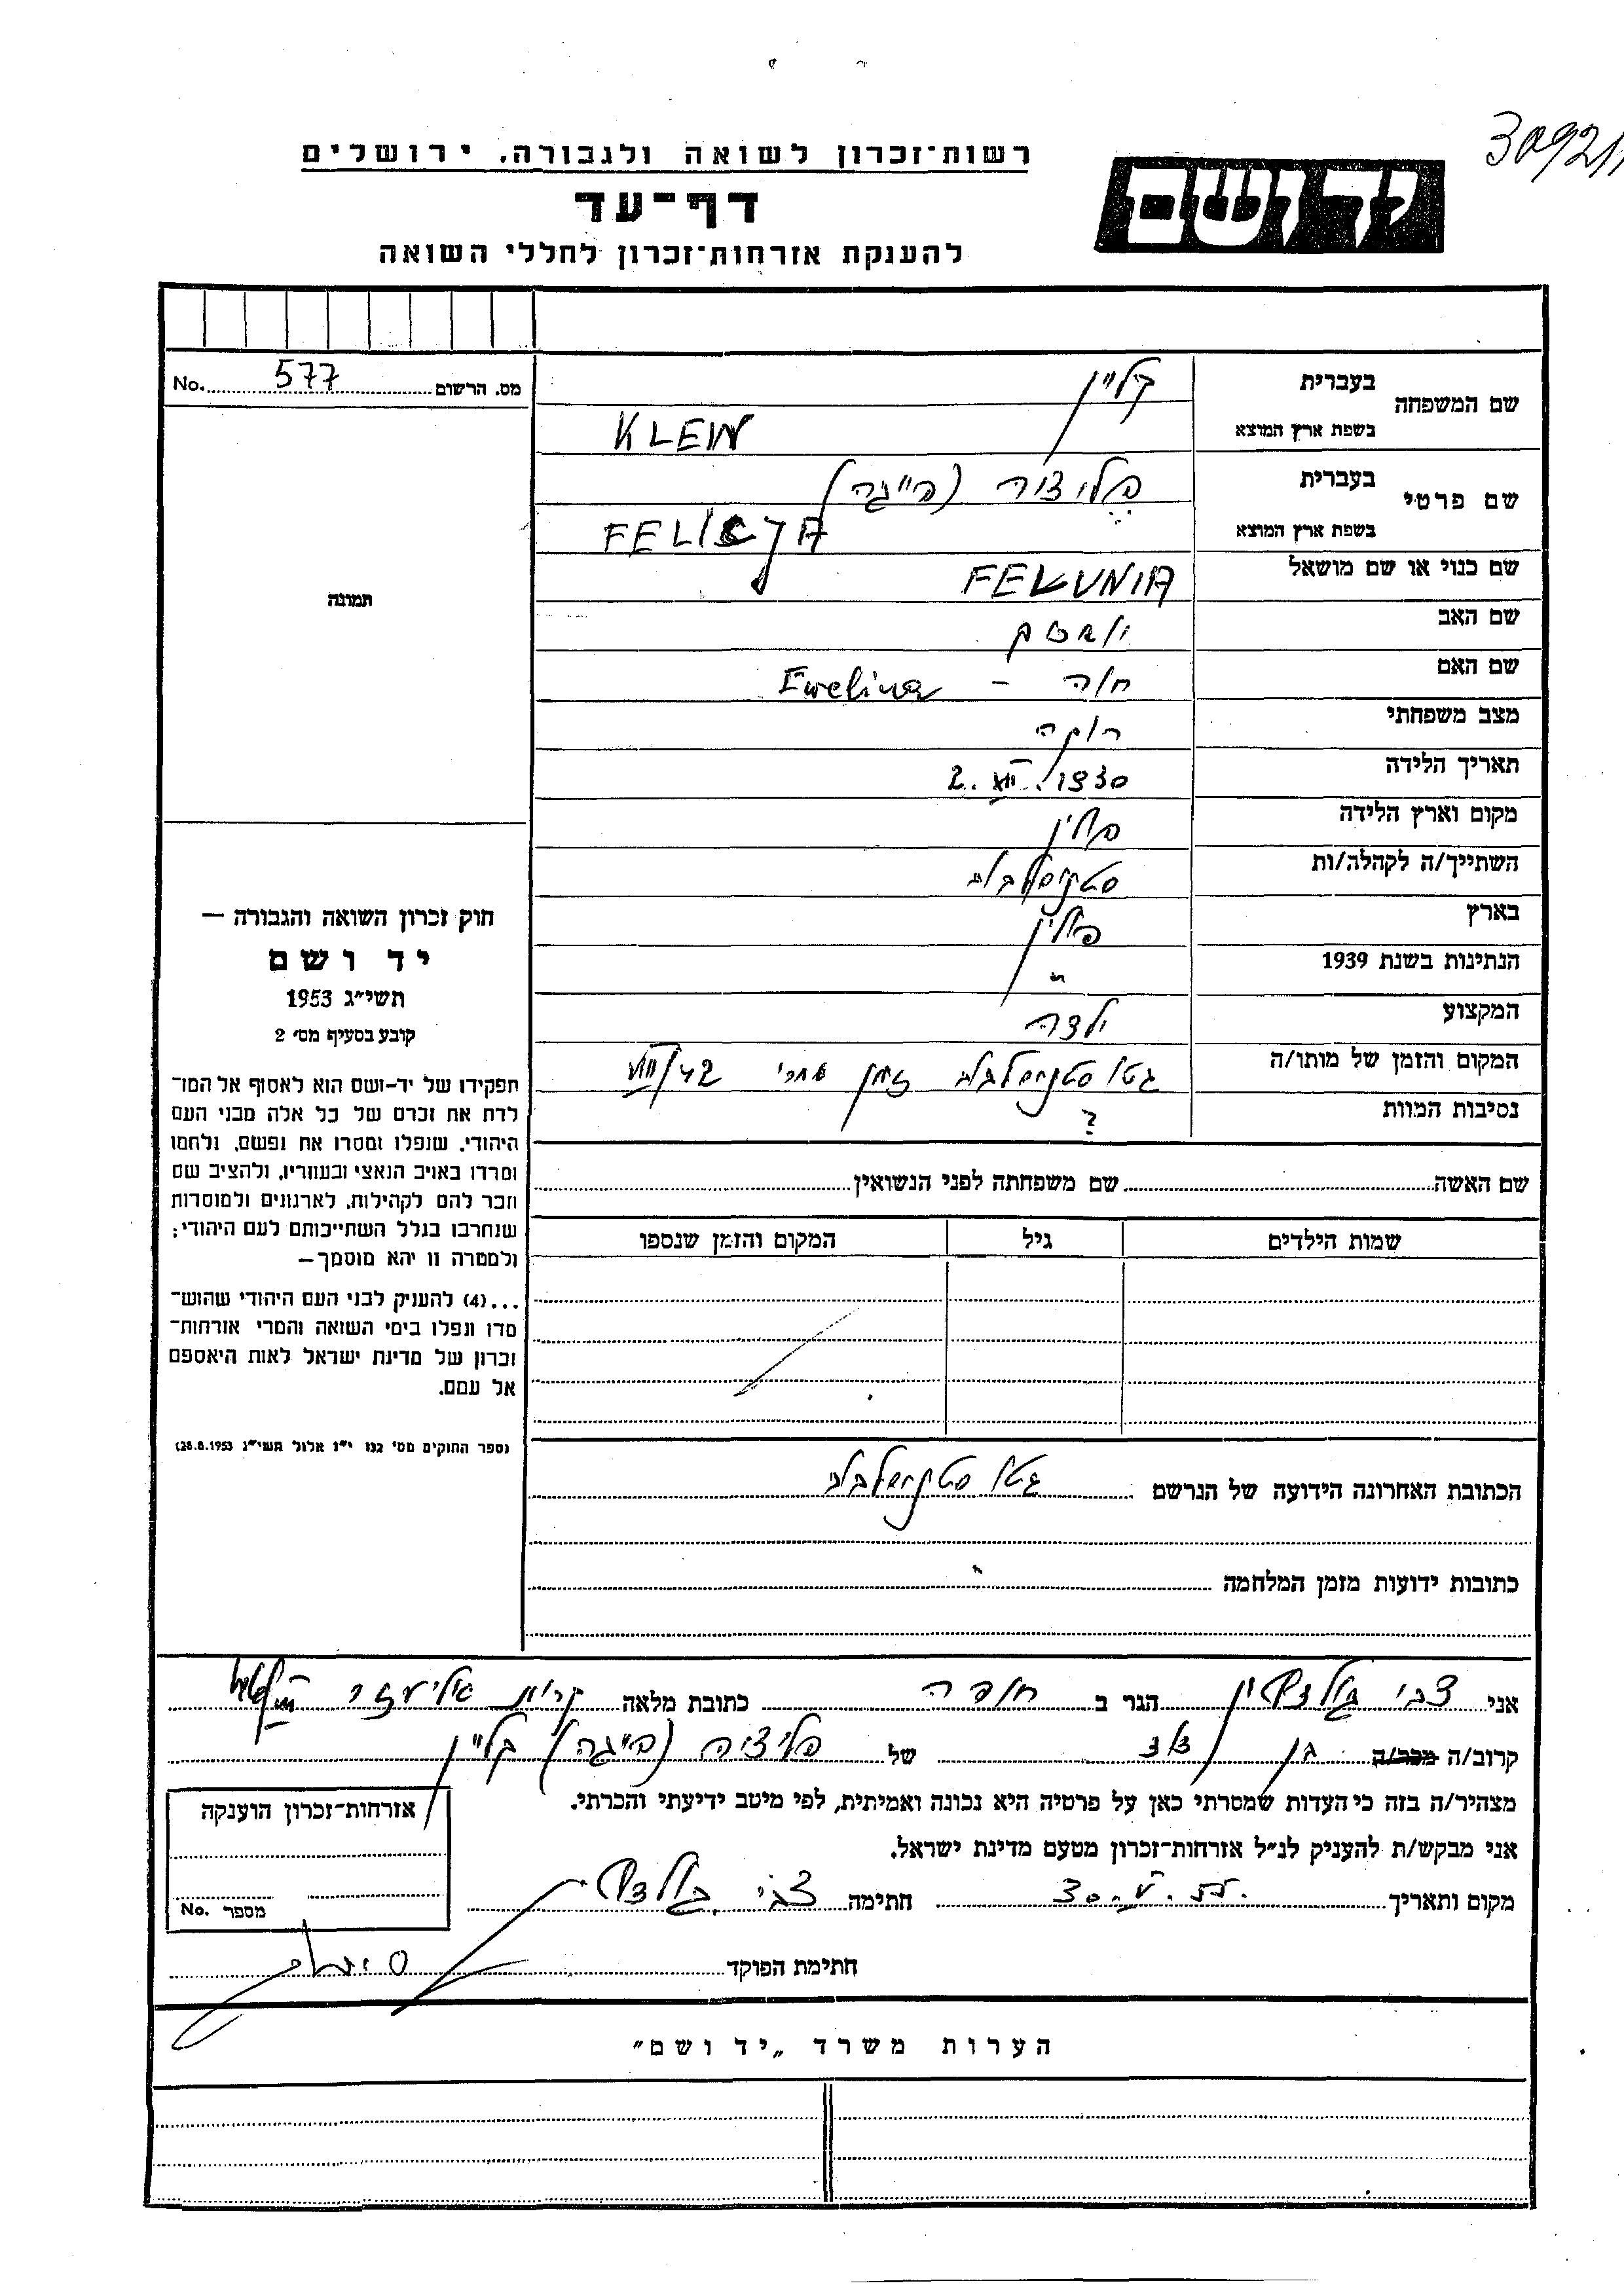 30921
רשות־זכרון לשואה ולגבורה, ירושלים
דף־עד
להענקת אזרחות־זכרון לחללי השואה
יד ושם
מס. הרשום 577 No.
שם המשפחה בעברית קליין
בשפת ארץ המוצא KLEIN
שם פרטי בעברית פליציה (פייגה)
בשפת ארץ המוצא FELICJA
שם כנוי או שם מושאל FELUNIA
שם האב
שם האם חוה - Ewelina
מצב משפחתי רוקה
תאריך הלידה 2. XII. 1930
מקום וארץ הלידה פולין
השתייך/ה לקהלה/ות סטניסלבוב
בארץ פולין
הנתינות בשנת 1939 "
המקצוע ילדה
המקום והזמן של מותו/ה גטו סטניסלבוב זמן אחרי VIII/42
נסיבות המוות ?
תמונה
חוק זכרון השואה והגבורה —
יד ושם
תשי״ג 1953
קובע בסעיף מס׳ 2
תפקידו של יד-ושם הוא לאסוף אל המו־
לדת את זכרם של כל אלה מבני העם
היהודי, שנפלו ומסרו את נפשם, נלחמו
ומרדו באויב הנאצי ובעוזריו, ולהציב שם
וזכר להם לקהילות, לארגונים ולמוסדות
שנחרבו בגלל השתייכותם לעם היהודי;
ולמטרה זו יהא מוסמך—
...(4) להעניק לבני העם היהודי שהוש־
מדו ונפלו בימי השואה והמרי אזרחות־
זכרון של מדינת ישראל לאות היאספם
אל עמם.
(ספר החוקים מס׳ 132 י״ז אלול תשי״ג 28.8.1953)
שם האשה שם משפחתה לפני הנשואין
שמות הילדים גיל המקום והזמן שנספו
הכתובת האחרונה הידועה של הנרשם גטו סטניסלבוב
כתובות ידועות מזמן המלחמה
אני צבי גולדשטיין הגר ב חדרה כתובת מלאה קרית אליעזר
קרוב/ה מכר/ה בן דוד של פליציה (פייגה) קליין
מצהיר/ה בזה כי העדות שמסרתי כאן על פרטיה היא נכונה ואמיתית, לפי מיטב ידיעתי והכרתי.
אני מבקש/ת להעניק לנ״ל אזרחות־זכרון מטעם מדינת ישראל.
מקום ותאריך 30. V. 55. חתימה צבי
אזרחות־זכרון הוענקה
מספר No.
חתימת הפוקד
הערות משרד „יד ושם״